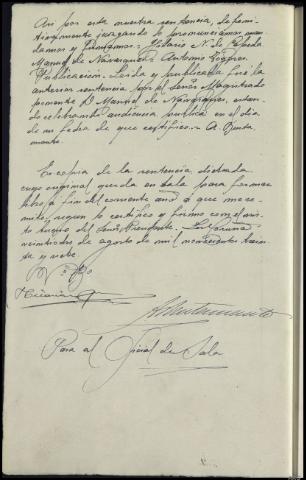 Así por esta nuestra sentencia, defini-
tivamente juzgando lo pronunciamos, man-
damos y firmamos: Hilario N. de Cepeda
Manuel de Navasqüés. Antonio
Publicación. Leída y publicada fué la
anterior sentencia por el Señor Magistrado
ponente D. Manuel de Navasqüés, estan-
do celebrando audiencia pública en el día
de su fecha de que certifico. A. Busta
mante.
Es copia de la sentencia dictada
cuyo original queda en Sala para formar
libro a fin del corriente año á que me re-
mito, según lo certifico y firmo con el vis-
to bueno del Señor Presidente. La Coruña
veintidos de agosto de mil novecientos trein-
ta y nueve.
Vº Bº
Hilario
A Bustamante
Para al Oficial de Sala